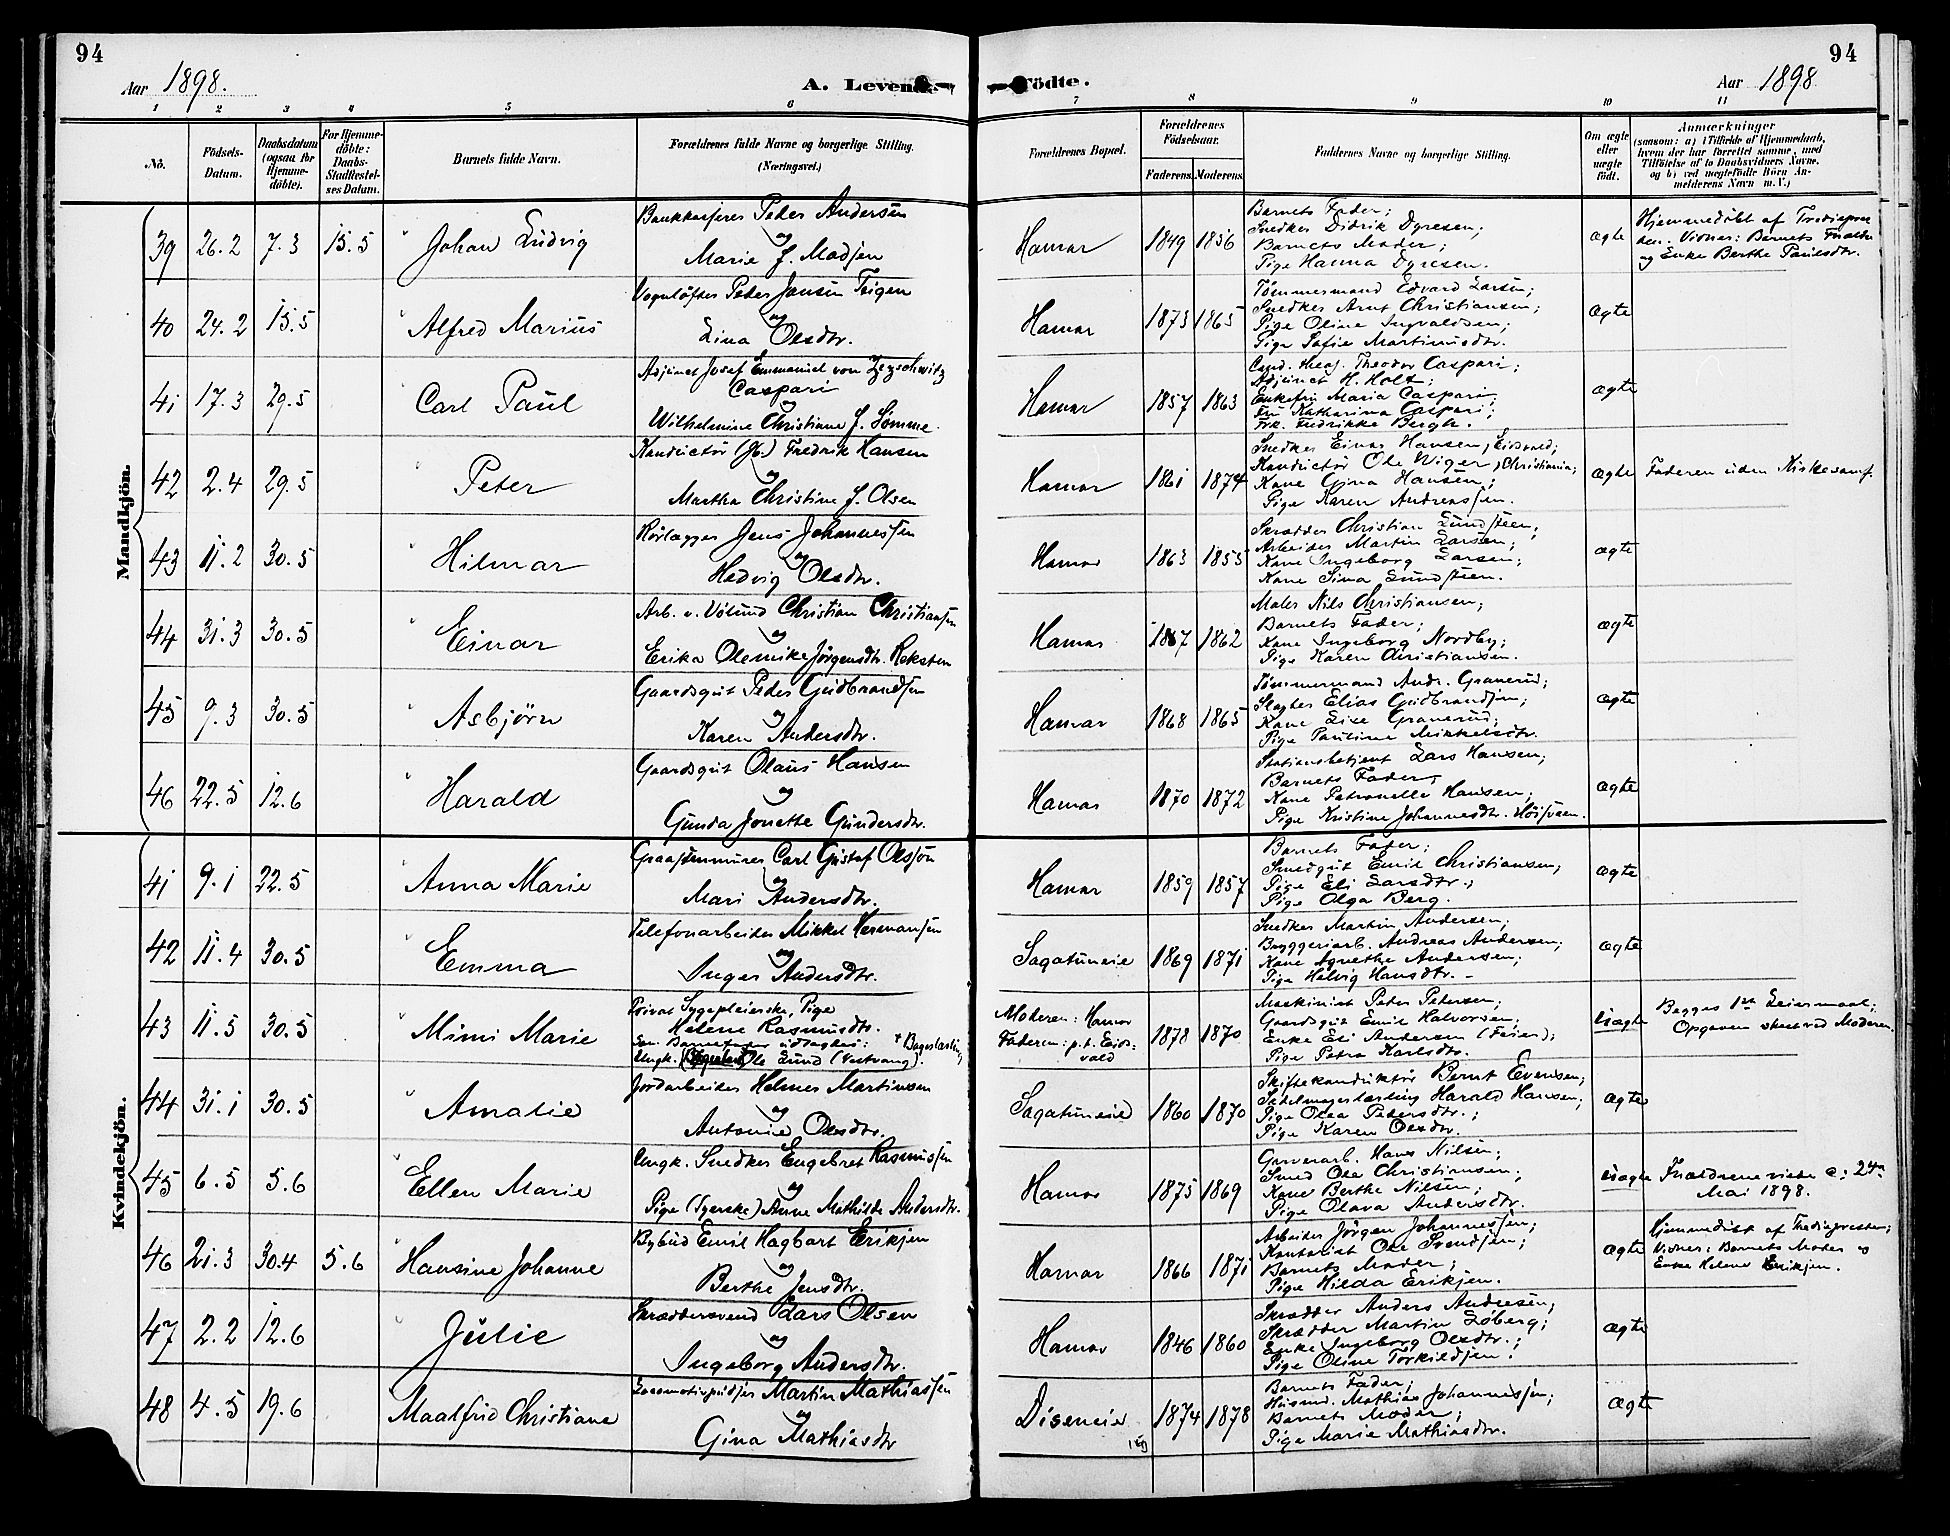 94
Aar 1898.
A. Levende
1 2 3 4 5 6
Nô.
Födsels-Datum.
Daabsdatum (ogsaa for Hjemmedöbte).
For Hjemmedöbte: Daabs-Stadfæstelses Datum.
Barnets fulde Navn.
Forældrenes fulde Navne og borgerlige Stilling.
(Næringsvei.)
Mandkjön.
39 26.2 7.3 15.5 Johan Ludvig
Bankkasserer Peder Andersen
og
Marie f. Madsen
40 24.2 15.5 Alfred Marius
Vognløfter Peder Jansen Teigen
og
Lina Olsdtr.
41 17.3 29.5 Carl Paul
Adjunct Josef Emmanuel von Zezschwitz
Caspari
og
Wilhelmine Christiane f. Sømme.
42 2.4 29.5 Peter
Konductør (Jb.) Fredrik Hansen
og
Martha Christine f. Olsen
43 11.2 30.5 Hilmar
Rørlægger Jens Johannessen
og
Hedvig Olsdtr.
44 31.3 30.5 Einar
Arb. v. Vølund Christian Christiansen
og
Erika Olemike Jørgensdtr. Reksten
45 9.3 30.5 Asbjørn
Gaardsgut Peder Gudbrandsen
og
Karen Andersdtr.
46 22.5 12.6 Harald
Gaardsgut Olaus Hansen
og
Gunda Jonette Gundersdtr.
Kvindekjön.
41 9.1 22.5 Anna Marie
Graastenmurer Carl Gustaf Olsson
og
Mari Andersdtr.
42 11.4 30.5 Emma
Telefonarbeider Mikkel Hermansen
og
Inger Andersdtr.
43 11.5 30.5 Mimi Marie
Privat Sygepleierske, Pige
Helene Rasmusdtr.
Som Barnefader udlagdes: + Bagerlærling
Ungk. Ole Lund (Vestvang).
44 31.1 30.5 Amalie
Jordarbeider Helmer Martinsen
og
Antonie Olsdtr.
45 6.5 5.6 Ellen Marie
Ungk. Snedker Engebret Rasmussen
og
Pige (Syerske) Anne Mathilde Andersdtr.
46 21.3 30.4 5.6 Hansine Johanne
Bybud Emil Hagbart Eriksen
og
Berthe Jensdtr.
47 2.2 12.6 Julie
Skræddersvend Lars Olsen
og
Ingeborg Andersdtr.
48 4.5 19.6 Maalfrid Christiane
Locomotivpudser Martin Mathiassen
og
Gina Mathiasdtr
94
Födte.
Aar 1898
7 8 9 10 11
Forældrenes Bopæl.
Forældrenes Födselsaar.
Faderens. Moderens.
Faddernes Navne og borgerlige Stilling.
Om ægte eller uægte födt.
Anmærkninger
(saasom: a) i Tilfælde af Hjemmedaab, hvem der har forrettet samme, med Tilföielse af to Daabsvidners Navne, og b) ved uægtefödte Börn Anmelderens Navn m. V.)
Hamar 1849 1856
Barnets Fader;
Snedker Didrik Dyresen;
Barnets Moder;
Pige Hanna Dyresen.
ægte
Hjemmedøbt af
Vidner: Barnets
og Enke Berthe Paulsdtr.
Hamar 1873 1865
Tømmermand Edvard Larsen;
Snedker Arnt Christiansen;
Pige Oline Ingvaldsen;
Pige Sofie Martinusdtr.
ægte
Hamar 1857 1863
Cand. theol. Theodor Caspari;
Adjunct H. Holt;
Enkefru Maria Caspari;
Fru Katharina Caspari;
Frk. Fredrikke Bergh.
ægte
Hamar 1861 1874
Snedker Einar Hansen, Eidsvold;
Konductør Ole Wiger, Christiania;
Kone Gina Hansen;
Pige Karen Andreassen.
ægte
Faderen uden Kirkesamf.
Hamar 1863 1855
Skrædder Christian Lundsteen;
Arbeider Martin Larsen;
Kone Ingeborg Larsen;
Kone Sina Lundsteen.
ægte
Hamar 1867 1862
Maler Nils Christiansen;
Barnets Fader;
Kone Ingeborg Nordby;
Pige Karen Christiansen.
ægte
Hamar 1868 1865
Tømmermand Andr. Granerud;
Slagter Elias Gudbrandsen;
Kone Lise Granerud;
Pige Pauline Mikkelsdtr.
ægte
Hamar 1870 1872
Stationsbetjent Lars Hansen;
Barnets Fader;
Kone Petronelle Hansen;
Pige Kristine Johannesdtr. Høisveen.
ægte
Hamar 1859 1857
Barnets Fader;
Smedgut Emil Christiansen;
Pige Eli Larsdtr.;
Pige Olga Berg.
ægte
Sagatuneie 1869 1871
Snedker Martin Andersen;
Bryggeriarb. Andreas Andersen;
Kone Agnethe Andersen;
Pige Helvig Hansdtr.
ægte
Moderen: Hamar
Faderen: p.t. Eidsvold
1878 1870
Maskinist Peter Petersen;
Gaardsgut Emil Halvorsen;
Enke Eli Andersen (Feier);
Pige Petra Karlsdtr.
uægte
Begges 1ste Leiermaal;
Opgaven skeet ved Moderen.
Sagatuneie 1860 1870
Skiftekonduktør Bernt Evensen;
Sadelmagerlærling Harald Hansen;
Pige Olea Pedersdtr.;
Pige Karen Olsdtr.
ægte
Hamar 1875 1869
Garverarb. Hans Nilsen;
Smed Ole Christiansen;
Kone Berthe Nilsen;
Pige Olava Andersdtr.
uægte
Forældrene viede d. 24de
Mai 1898.
Hamar 1866 1871
Arbeider Jørgen Johannessen;
Kontorist Ole Svendsen;
Barnets Moder;
Pige Hilda Eriksen.
ægte
Hjemmedøbt af Trediepresten;
Vidner: Barnets Moder og
Enke Helene Eriksen.
Hamar 1846 1860
Skrædder Anders Andresen;
Skrædder Martin Løberg;
Enke Ingeborg Olsdtr.;
Pige Oline Torkildsen.
ægte
Diseneie 1874 1878
Barnets Fader;
Husmd. Mathias Johannessen;
Barnets Moder;
Pige Marie Mathiasdtr.
ægte